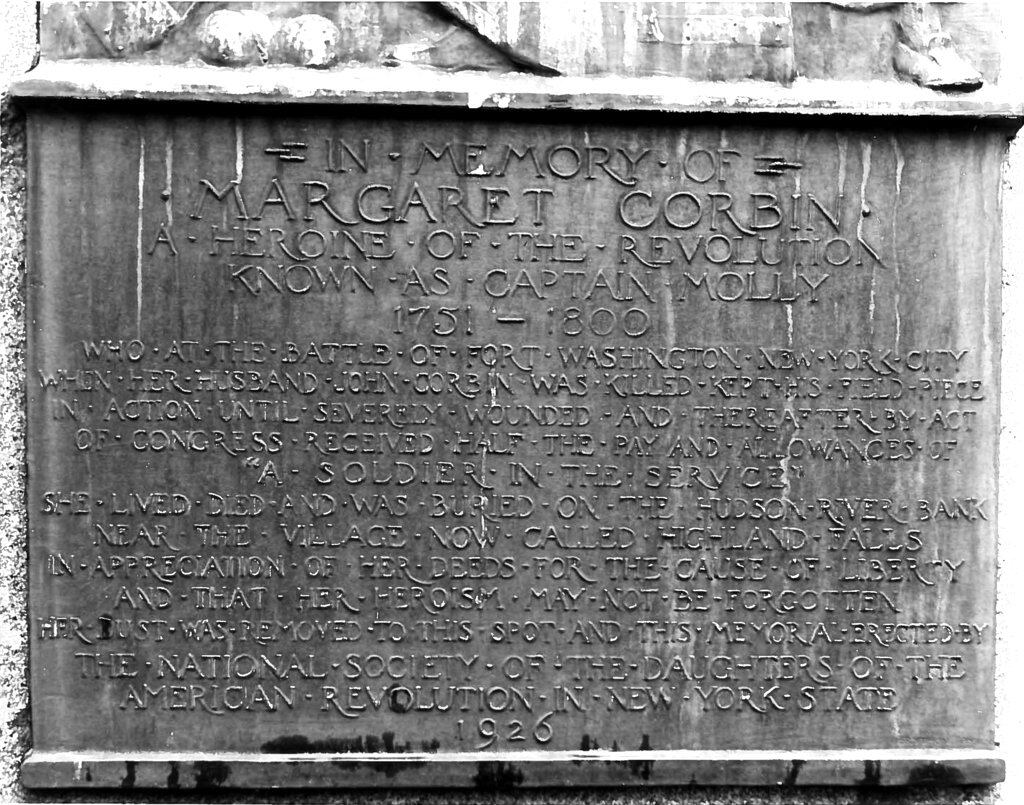 IN · MEMORY · OF
· MARGARET CORBIN ·
A · HEROINE · OF · THE · REVOLUTION
KNOWN · AS · CAPTAIN MOLLY
1751 – 1800
WHO · AT · THE · BATTLE · OF · FORT · WASHINGTON · NEW · YORK · CITY
WHEN · HER · HUSBAND · JOHN · CORBIN · WAS · KILLED · KEPT · HIS · FIELD · PIECE
IN · ACTION · UNTIL · SEVERELY · WOUNDED · AND · THEREAFTER · BY · ACT
OF · CONGRESS · RECEIVED · HALF · THE · PAY · AND · ALLOWANCES · OF
"A · SOLDIER · IN · THE · SERVICE"
SHE · LIVED · DIED · AND · WAS · BURIED · ON · THE · HUDSON · RIVER · BANK
NEAR · THE · VILLAGE · NOW · CALLED · HIGHLAND · FALLS
IN · APPRECIATION · OF · HER · DEEDS · FOR · THE · CAUSE · OF · LIBERTY
AND · THAT · HER · HEROISM · MAY · NOT · BE · FORGOTTEN
HER DUST · WAS · REMOVED · TO · THIS · SPOT · AND · THIS · MEMORIAL · ERECTED · BY
THE · NATIONAL · SOCIETY · OF · THE · DAUGHTERS · OF · THE
AMERICAN · REVOLUTION · IN · NEW · YORK · STATE
1926